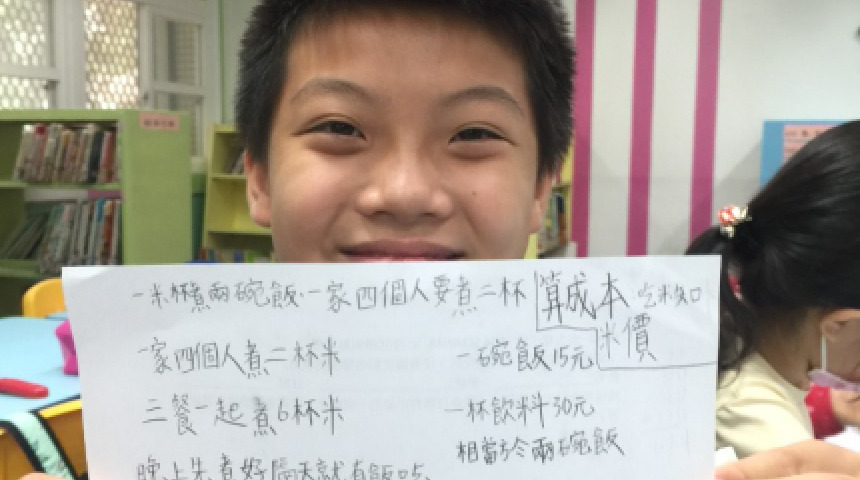 一米杯煮兩碗飯.一家四個人要煮二杯
算成本 吃米知
米價
一家四個人煮二杯米
三餐一起煮6杯米
晚上先煮好隔天就有飯吃.
一碗飯15元
一杯飲料30元
相當於兩碗飯